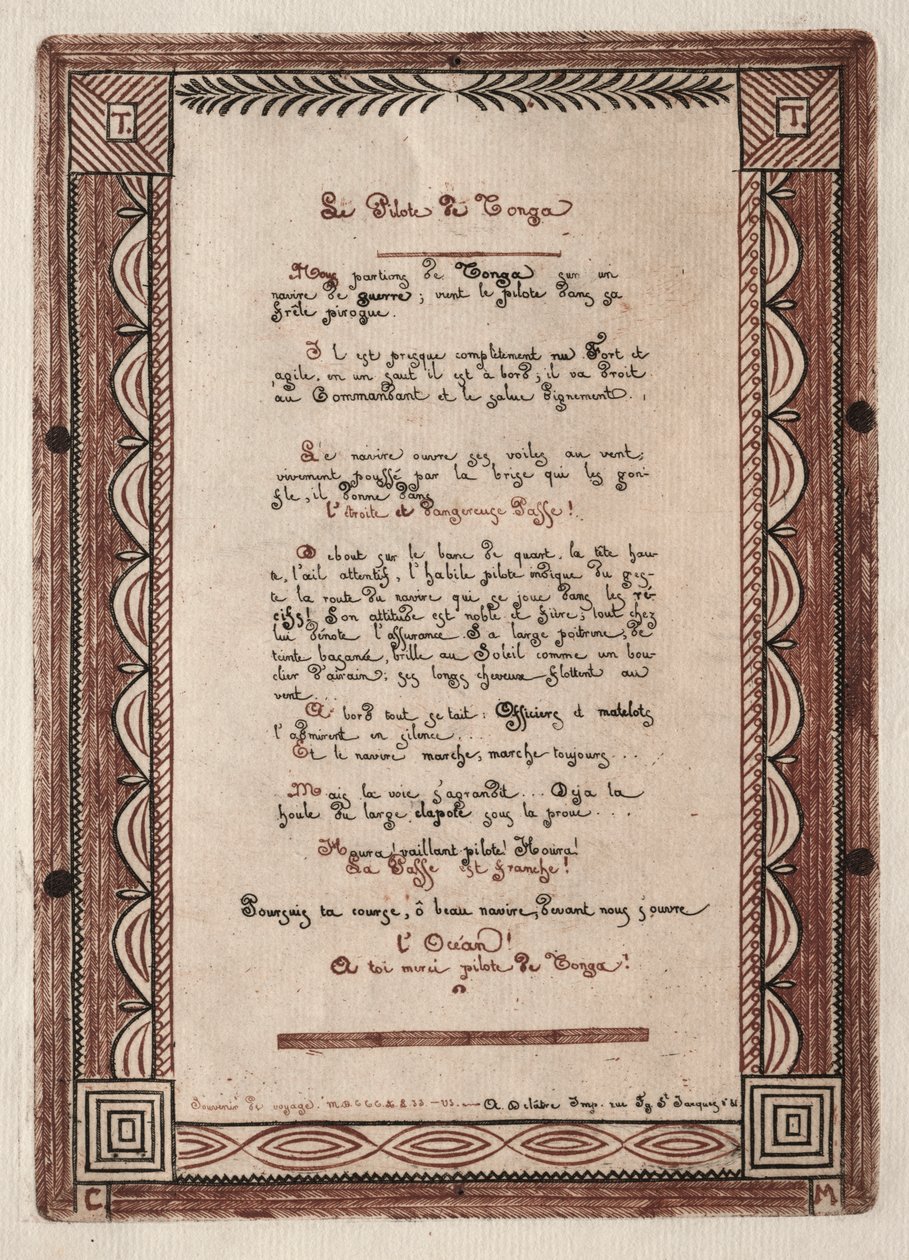 T. T.
Le Pilote de Tonga
Nous partions de Tonga sur un
navire de guerre ; vient le pilote dans sa
frêle pirogue.
Il est presque complètement nu Fort et
agile, en un saut il est à bord ; il va droit
au Commandant et le salue dignement.
Le navire ouvre ses voiles au vent ;
vivement poussé par la brise qui les gon-
fle, il donne dans
l'étroite et dangereuse Passe !
Debout sur le banc de quart, la tête hau-
te, l'œil attentif, l'habile pilote indique du ges-
te la route du navire qui se joue dans les ré-
cifs! Son attitude est noble et fière ; tout chez
lui dénote l'assurance. Sa large poitrine, de
teinte basanée, brille au Soleil comme un bou-
clier d'airain ; ses longs cheveux flottent au
vent...
A bord tout se tait : Officiers et matelots
l'admirent en silence....
Et le navire marche, marche toujours....
Mais la voie s'agrandit... Déja la
houle du large clapote sous la proue....
Houra ! vaillant pilote! Houra!
La Passe est franche !
Poursuis ta course, ô beau navire, devant nous s'ouvre
l'Océan !
A toi merci pilote de Tonga !
Souvenir de voyage. A. Delâtre Imp. rue Fg St Jacques
C. M.